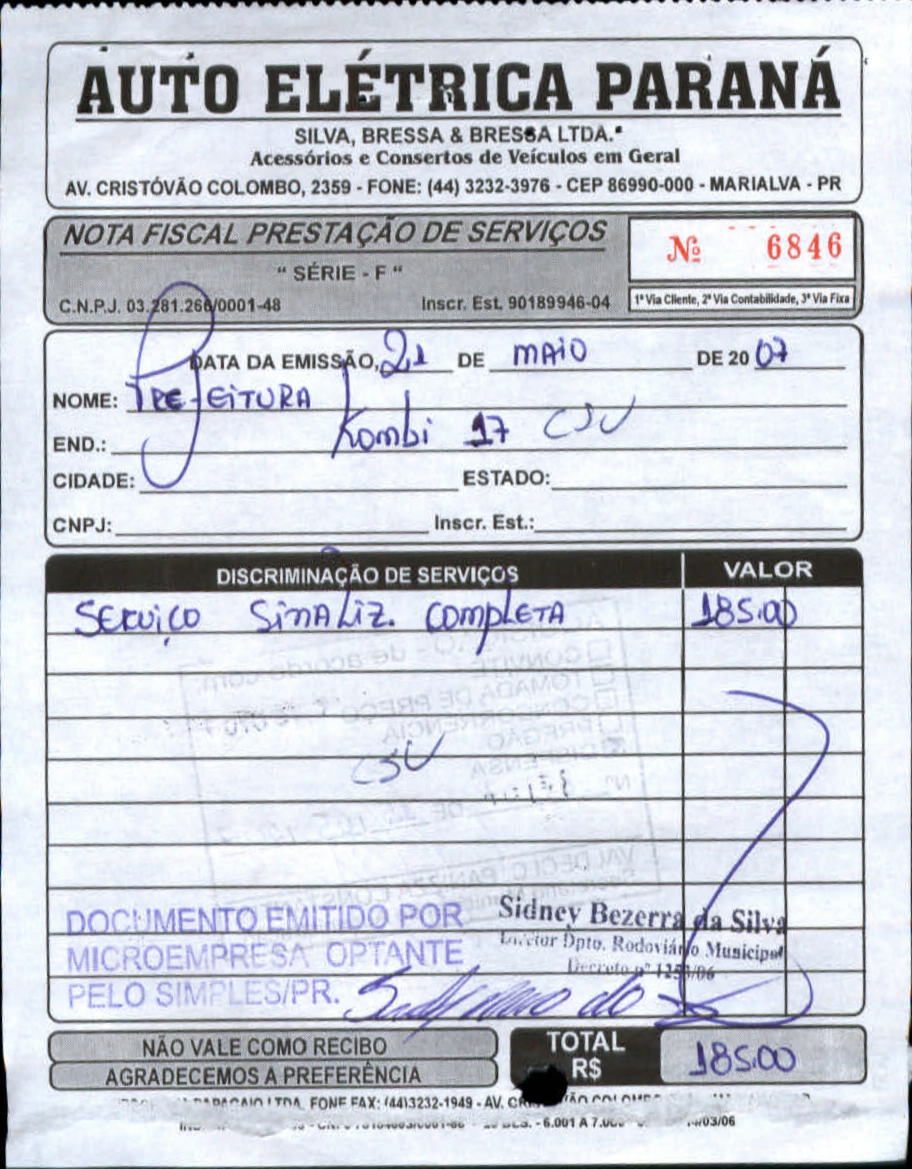 AUTO ELÉTRICA PARANÁ
SILVA, BRESSA & BRESSA LTDA.
Acessórios e Consertos de Veículos em Geral
AV. CRISTÓVÃO COLOMBO, 2359 - FONE: (44) 3232-3976 - CEP 86990-000 - MARIALVA - PR
NOTA FISCAL PRESTAÇÃO DE SERVIÇOS
Nº 6846
" SÉRIE - F "
C.N.P.J. 03.281.266/0001-48 Inscr. Est. 90189946-04
1ª Via Cliente, 2ª Via Contabilidade, 3ª Via Fixa
DATA DA EMISSÃO, 21 DE MAIO DE 2007
NOME: PREFEITURA
END.: Kombi 17 CSU
CIDADE: ESTADO:
CNPJ: Inscr. Est.:
DISCRIMINAÇÃO DE SERVIÇOS VALOR
SERVIÇO SINALIZ. COMPLETA 185.00
AQUISIÇÃO - de acordo com:
CONVITE
TOMADA DE PREÇO
CONCORRÊNCIA
PREGÃO
DISPENSA
CSU
DOCUMENTO EMITIDO POR
MICROEMPRESA OPTANTE
PELO SIMPLES/PR.
Sidney Bezerra da Silva
Diretor Dpto. Rodoviário Municipal
Decreto nº
NÃO VALE COMO RECIBO
AGRADECEMOS A PREFERÊNCIA
TOTAL R$ 185.00
LTDA. FONE FAX: (44)3232-1949 - AV.
- 6.001 A 7.000